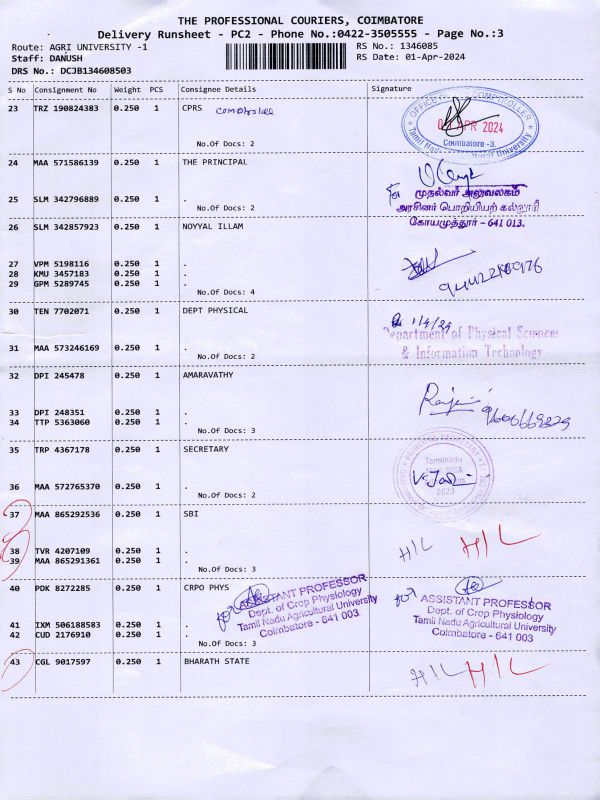 THE PROFESSIONAL COURIERS, COIMBATORE
Delivery Runsheet - PC2 - Phone No.:0422-3505555 - Page No.:3
Route: AGRI UNIVERSITY -1 RS No.: 1346085
Staff: DANUSH RS Date: 01-Apr-2024
DRS No.: DCJB134608503
S No Consignment No Weight PCS Consignee Details Signature
23 TRZ 190824383 0.250 1 CPRS
No.Of Docs: 2
APR 2024
Coimbatore -3.
24 MAA 571586139 0.250 1 THE PRINCIPAL
for
முதல்வர் அலுவலகம்
25 SLM 342796889 0.250 1 .
No.Of Docs: 2
அரசினர் பொறியியற் கல்லூரி
கோயமுத்தூர் - 641 013.
26 SLM 342857923 0.250 1 NOYYAL ILLAM
27 VPM 5198116 0.250 1 .
28 KMU 3457183 0.250 1 .
29 GPM 5289745 0.250 1 .
No.Of Docs: 4
30 TEN 7702071 0.250 1 DEPT PHYSICAL
1/4/24
Department of Physical Science
& Information Technology
31 MAA 573246169 0.250 1 .
No.Of Docs: 2
32 DPI 245478 0.250 1 AMARAVATHY
33 DPI 248351 0.250 1 .
34 TTP 5363060 0.250 1 .
No.Of Docs: 3
35 TRP 4367178 0.250 1 SECRETARY
Tamilnadu
2023
36 MAA 572765370 0.250 1 .
No.Of Docs: 2
37 MAA 865292536 0.250 1 SBI
38 TVR 4207109 0.250 1 .
39 MAA 865291361 0.250 1 .
No.Of Docs: 3
H/L H/L
40 PDK 8272285 0.250 1 CRPO PHYS
for ASSISTANT PROFESSOR
Dept. of Crop Physiology
Tamil Nadu Agricultural University
Coimbatore - 641 003
for ASSISTANT PROFESSOR
Dept. of Crop Physiology
Tamil Nadu Agricultural University
Coimbatore - 641 003
41 IXM 506188583 0.250 1 .
42 CUD 2176910 0.250 1 .
No.Of Docs: 3
43 CGL 9017597 0.250 1 BHARATH STATE
H/L H/L